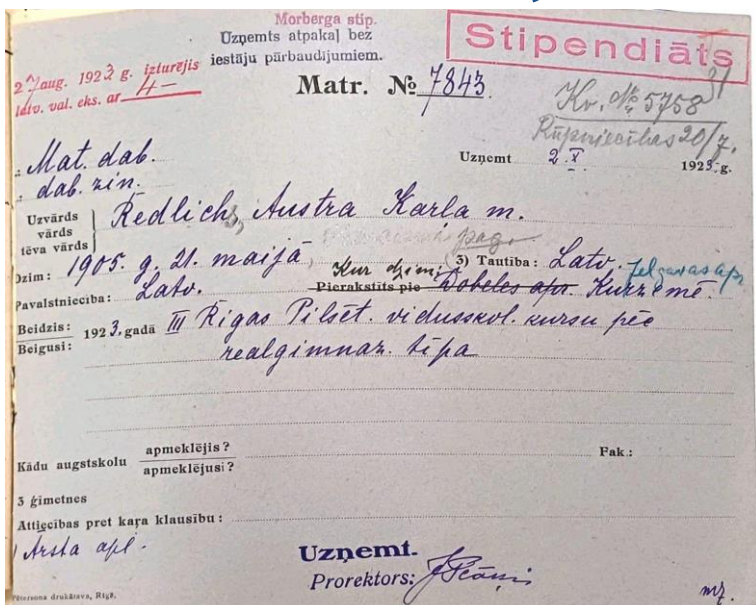 Morberga stip.
Uzņemts atpakaļ bez
iestāju pārbaudījumiem.
Stipendiāts
27 aug. 1923 g. izturējis
latv. val. eks. ar 4-
Matr. № 7843.
Kv. № 5758
Rūpniecības 20/7.
Mat. dab.
dab. zin.
Uzņemt 2. X. 1923. g.
Uzvārds
vārds
tēva vārds
Redlichs, Austra Karla m.
Dzim: 1905. g. 21. maijā, Kur dzim. (3) Tautība: Latv. Jelgavas apr.
Pavalstniecība: Latv. Pierakstīts pie Dobeles apr. Kurzemē.
Beidzis:
Beigusi:
1923. gadā III Rīgas Pilsēt. vidusskol. kursu pēc
realgimnaz. tipa
Kādu augstskolu apmeklējis?
apmeklējusi?
Fak.:
3 ģimetnes
Attiecības pret kaŗa klausību:
Ārsta apl.
Uzņemt.
Prorektors:
mz.
Pētersona drukātava, Rīgā.